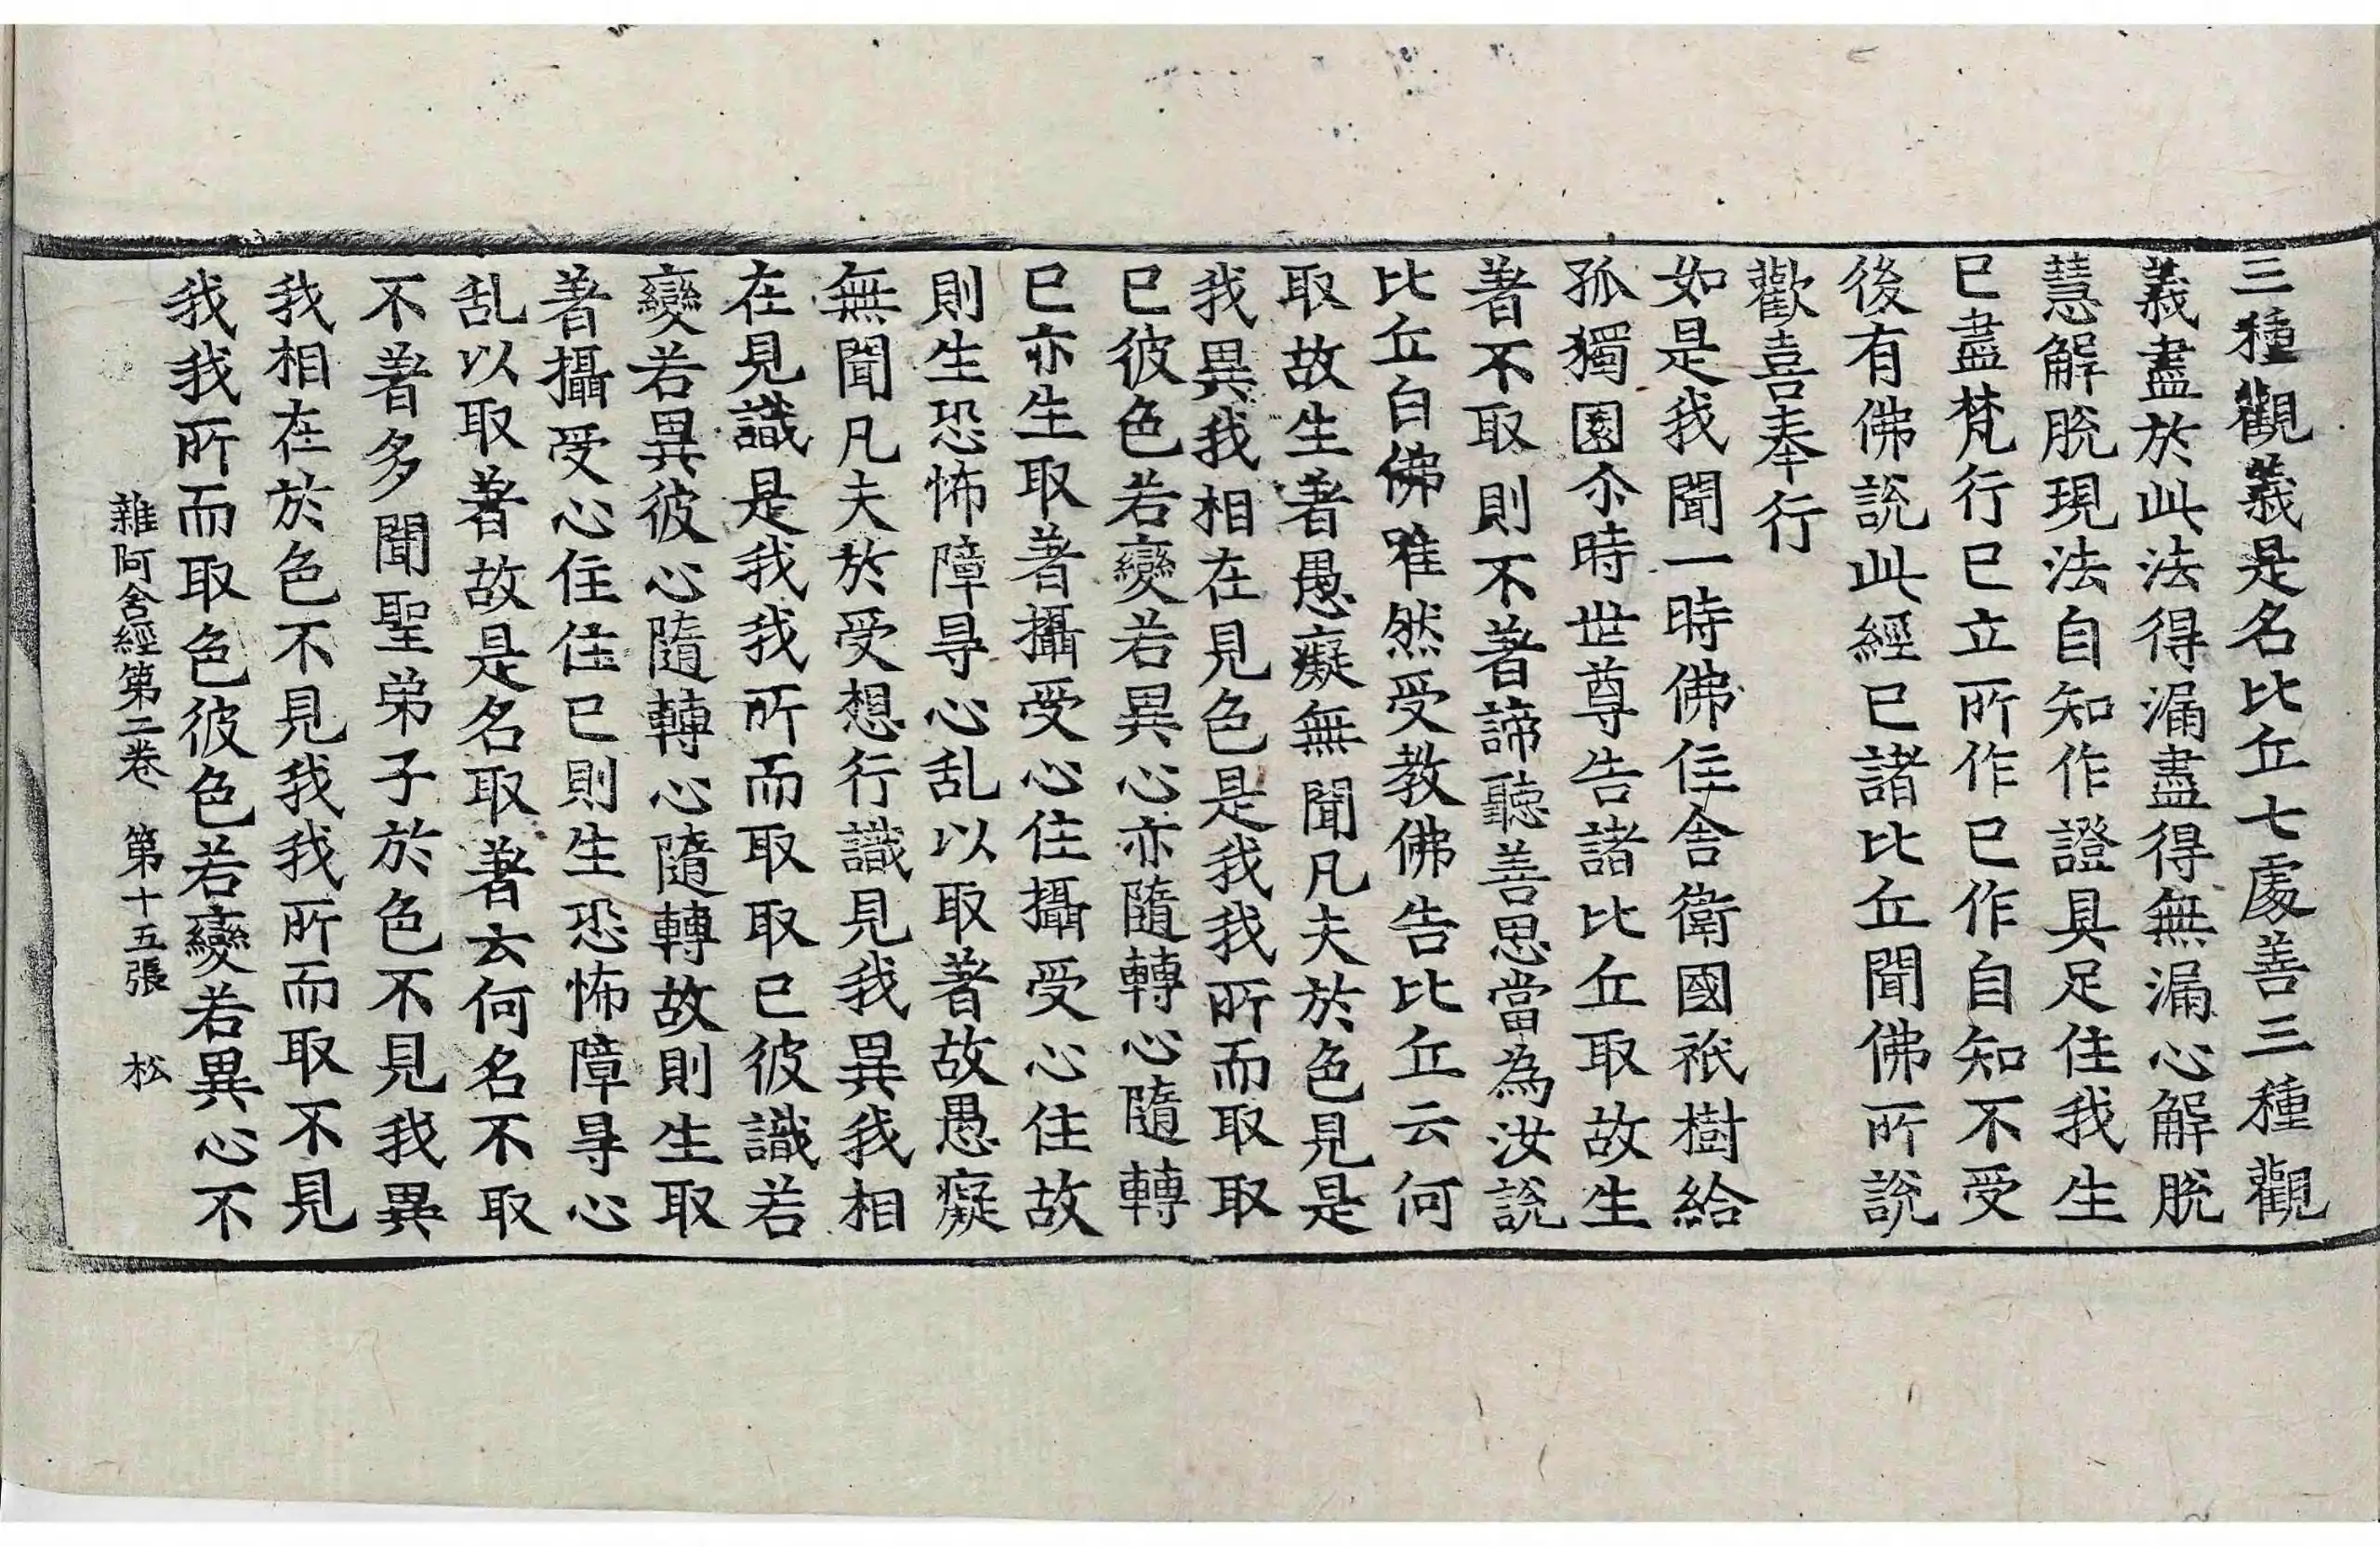 三種觀義是名比丘七處善三種觀
義盡於此法得漏盡得無漏心解脫
慧解脫現法自知作證具足住我生
已盡梵行已立所作已作自知不受
後有佛說此經已諸比丘聞佛所說
歡喜奉行
如是我聞一時佛住舍衛國祇樹給
孤獨園尒時世尊告諸比丘取故生
著不取則不著諦聽善思當為汝說
比丘白佛唯然受教佛告比丘云何
取故生著愚癡無聞凡夫於色見是
我異我相在見色是我我所而取取
已彼色若變若異心亦隨轉心隨轉
已亦生取著攝受心住攝受心住故
則生恐怖障㝵心乱以取著故愚癡
無聞凡夫於受想行識見我異我相
在見識是我我所而取取已彼識若
變若異彼心隨轉心隨轉故則生取
著攝受心住住已則生恐怖障㝵心
乱以取著故是名取著云何名不取
不著多聞聖弟子於色不見我異
我相在於色不見我我所而取不見
我我所而取色彼色若變若異心不
雜阿含經第二卷 第十五張 松